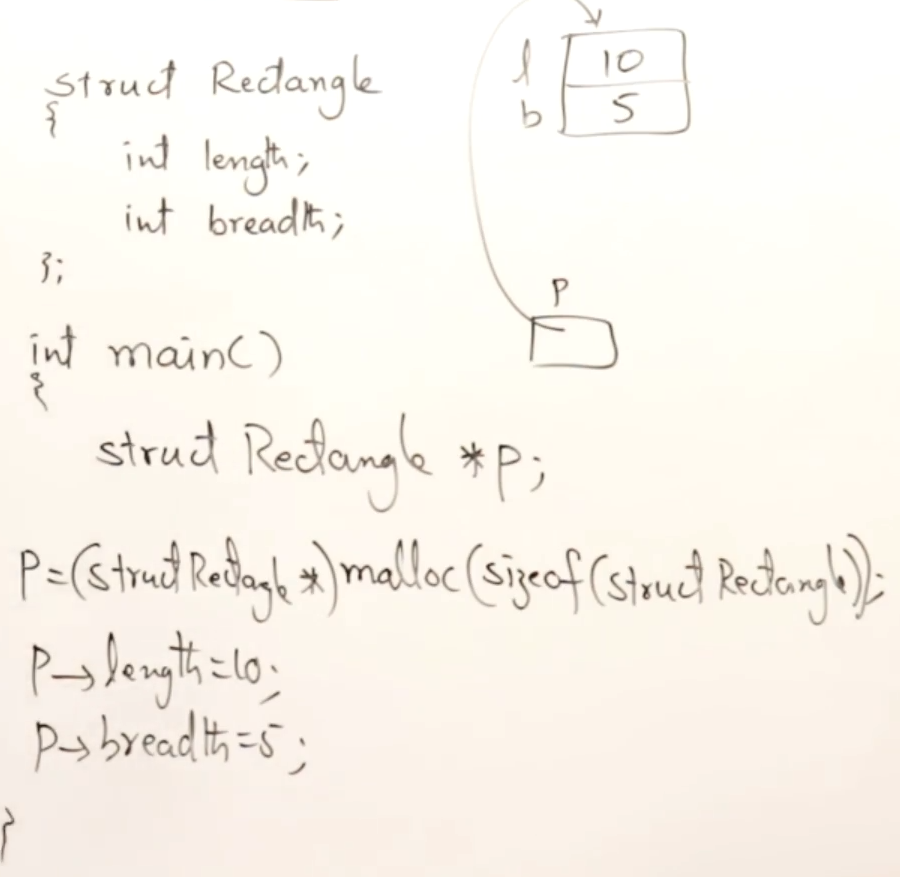 struct Rectangle
{
int length;
int breadth;
};
int main()
{
struct Rectangle *p;
P=(struct Rectagle *)malloc(sizeof(struct Rectangle));
P→length=10;
P→breadth=5;
}
l 10
b 5
P